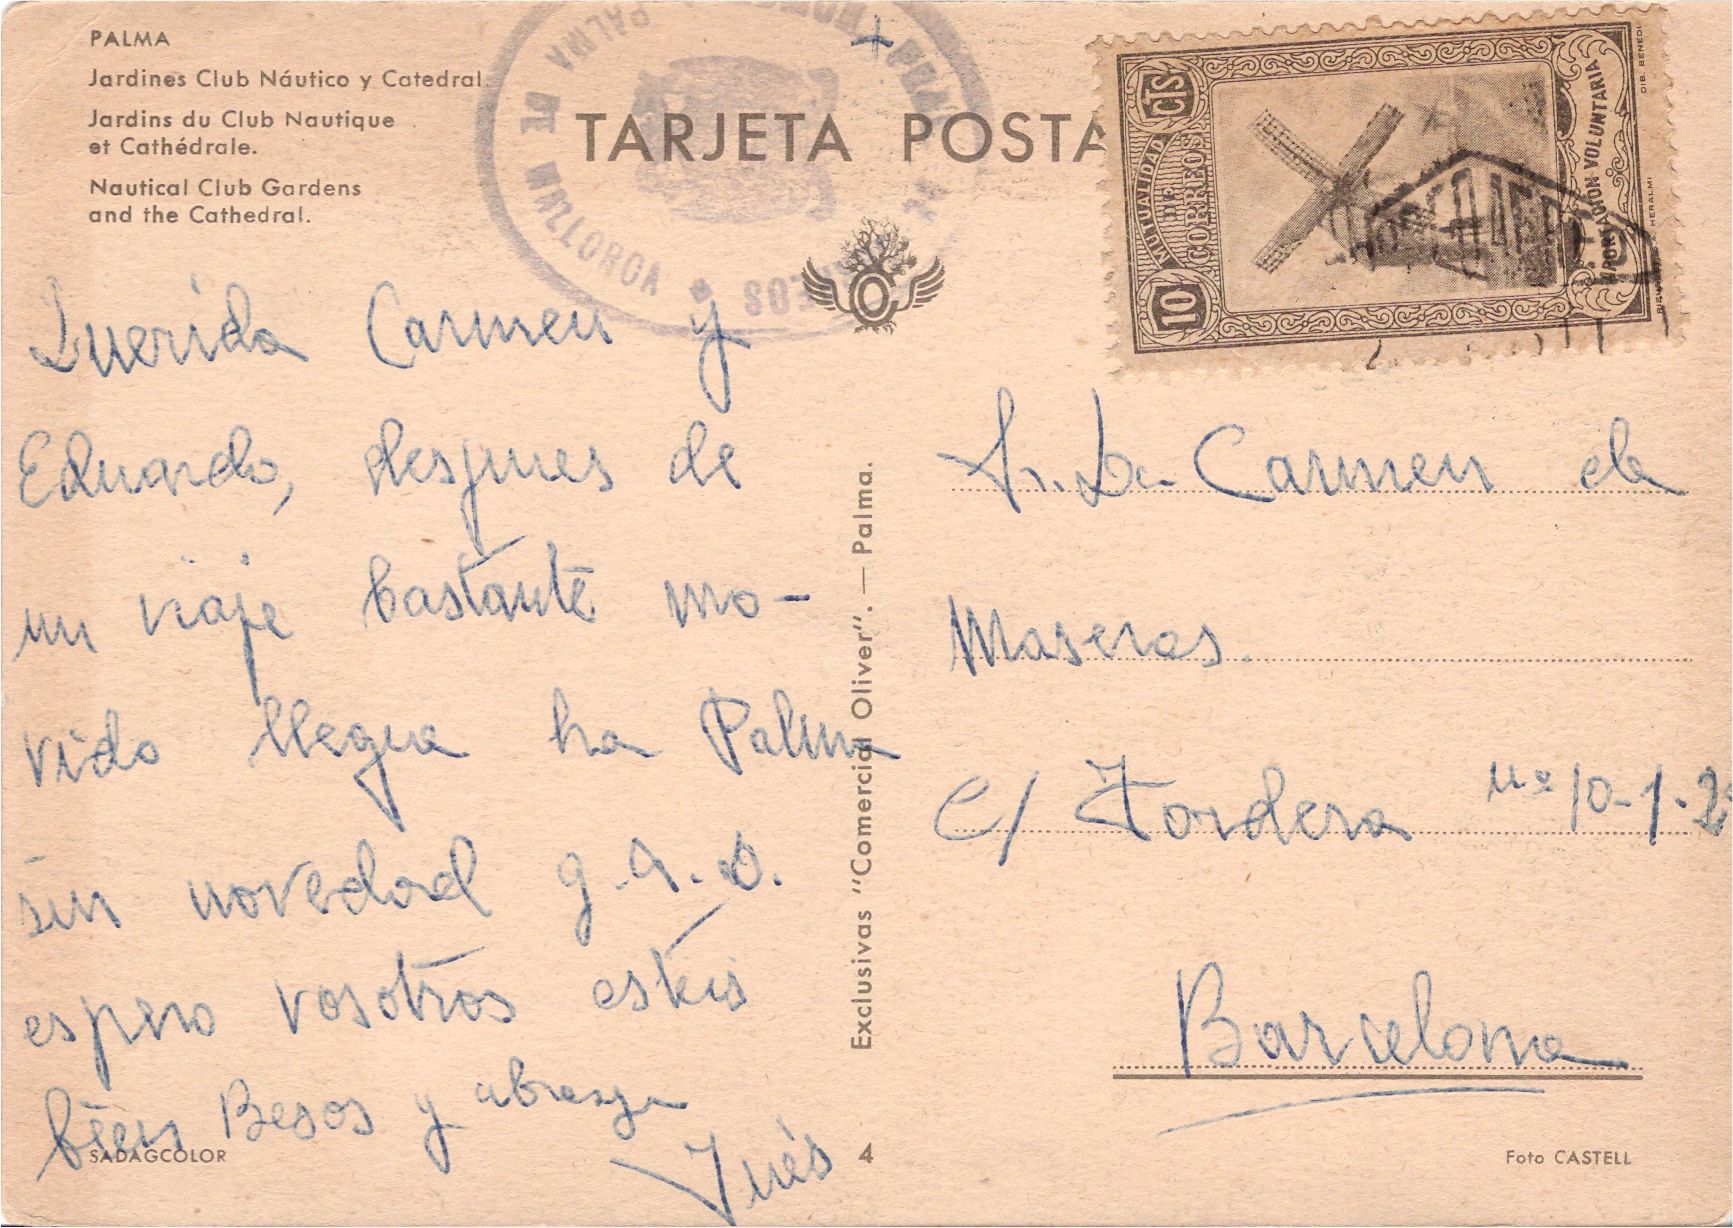 PALMA
Jardines Club Náutico y Catedral.
Jardins du Club Nautique
et Cathédrale.
Nautical Club Gardens
and the Cathedral.
TARJETA POSTA
PALMA DE MALLORCA
10 CTS
MUTUALIDAD
DE
CORREOS
APORTACION VOLUNTARIA
DIB. BENEDI
Querida Carmen y
Eduardo, despues de
un viaje bastante mo-
vido llegue ha Palma
sin novedad g.a.D.
espero vosotros esteis
bien Besos y abrazos
Inés
Exclusivas "Comercial Oliver". — Palma.
Sr. Da Carmen de
Maseras.
C/ Tordera nº 10-1-2ª
Barcelona
SADAGCOLOR
4
Foto CASTELL